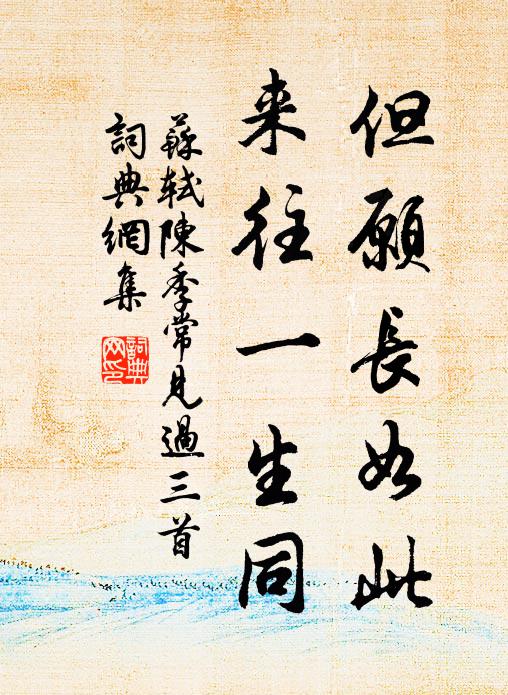 但願長如此
来往一生同
蘇軾陳季常見過三首
詞典網集
詞典
网印